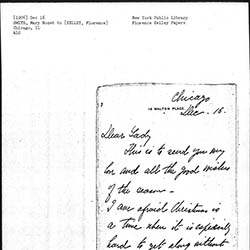 [1906] Dec 16
SMITH, Mary Rozet to [KELLEY, Florence]
Chicago, IL
ALS
New York Public Library
Florence Kelley Papers
Chicago
19 WALTON PLACE
Dec - 16
Dear Lady
This is to send you my
love and all the good wishes
of the season -
I am afraid Christmas is
a time when it is especially
hard to get along without